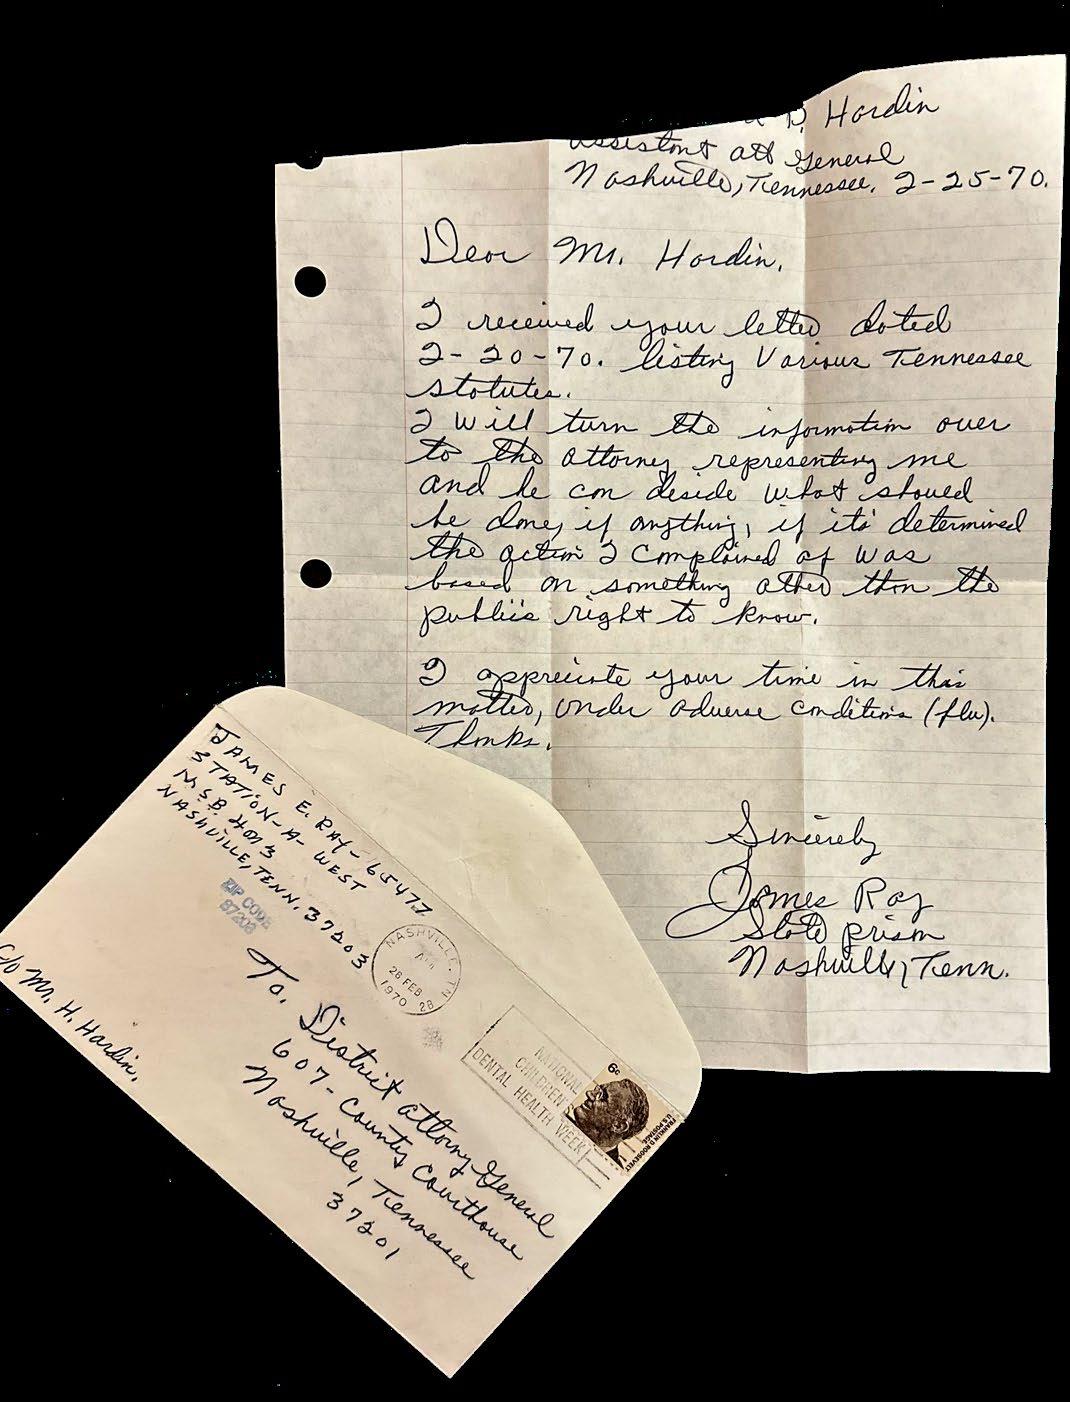 D. Hardin
Assistant att General
Nashville, Tennessee. 2-25-70.
Dear Mr. Hardin.
I received your letter dated
2-20-70. listing Various Tennessee
statutes.
I will turn the information over
to the attorney representing me
and he can deside what should
be done, if anything, if it's determined
the action I complained of was
based on something other than the
public's right to know.
I appreciate your time in this
matter, under adverse conditions (flu).
Thanks.
Sincerely
James Ray
State prison
Nashville, Tenn.
JAMES E. RAY - 65477
STATION-A- WEST
M.S.B.
NASHVILLE, TENN. 37203
ZIP CODE
NASHVILLE, TN
26 FEB
1970
NATIONAL
CHILDREN'S
DENTAL HEALTH WEEK
6¢
FRANKLIN D. ROOSEVELT
U.S. POSTAGE
To. District attorney General
607 - County Courthouse
Nashville, Tennessee
37201
c/o Mr. H. Hardin.